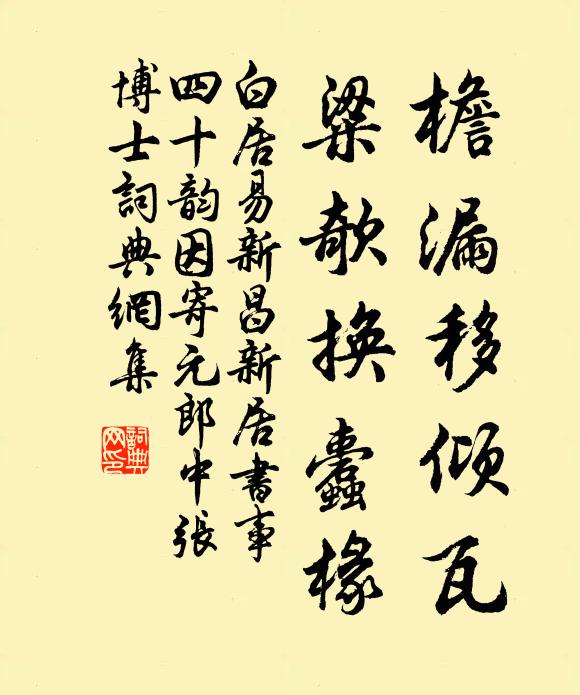 檐漏移傾瓦
梁欹換蠹椽
白居易新昌新居書事
四十韵因寄元郎中張
博士詞典網集
詞典
网印